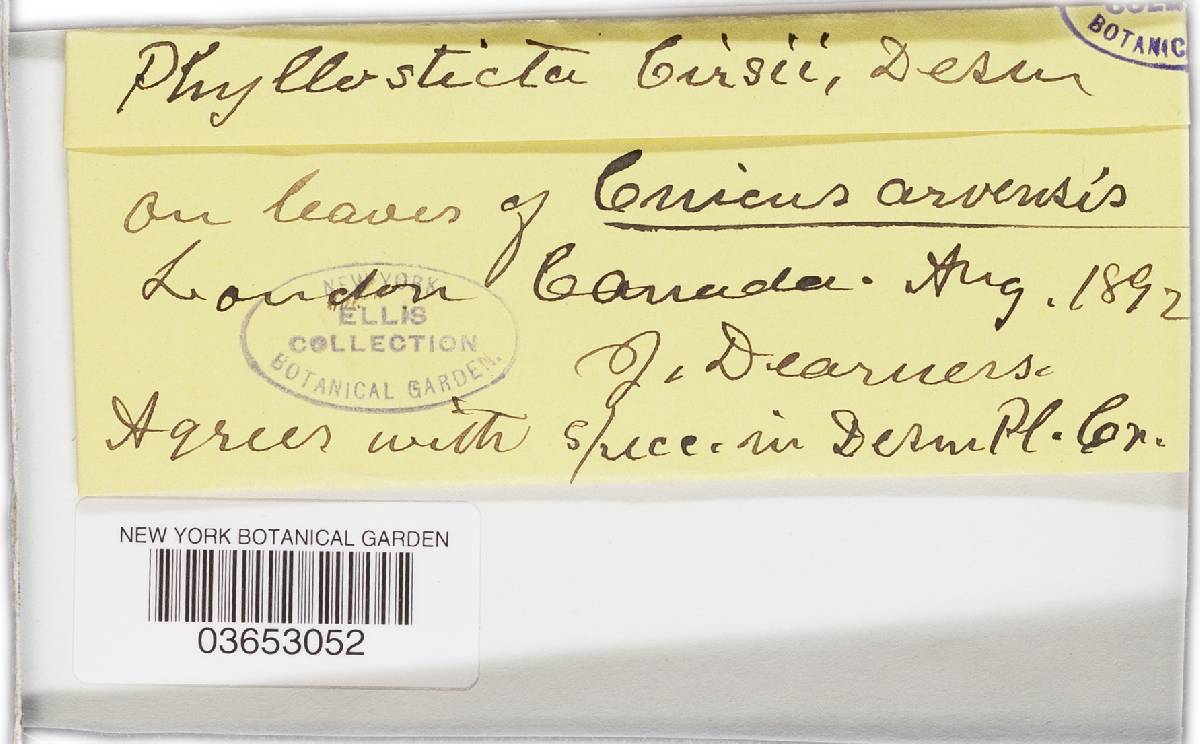 BOTANIC
Phyllosticta Cirsii, Desm
on leaves of Cnicus arvensis
London Canada. Aug. 1892
J. Dearness.
Agrees with spec. in Desm Pl. Cr.
NEW YORK
ELLIS
COLLECTION
BOTANICAL GARDEN.
NEW YORK BOTANICAL GARDEN
03653052